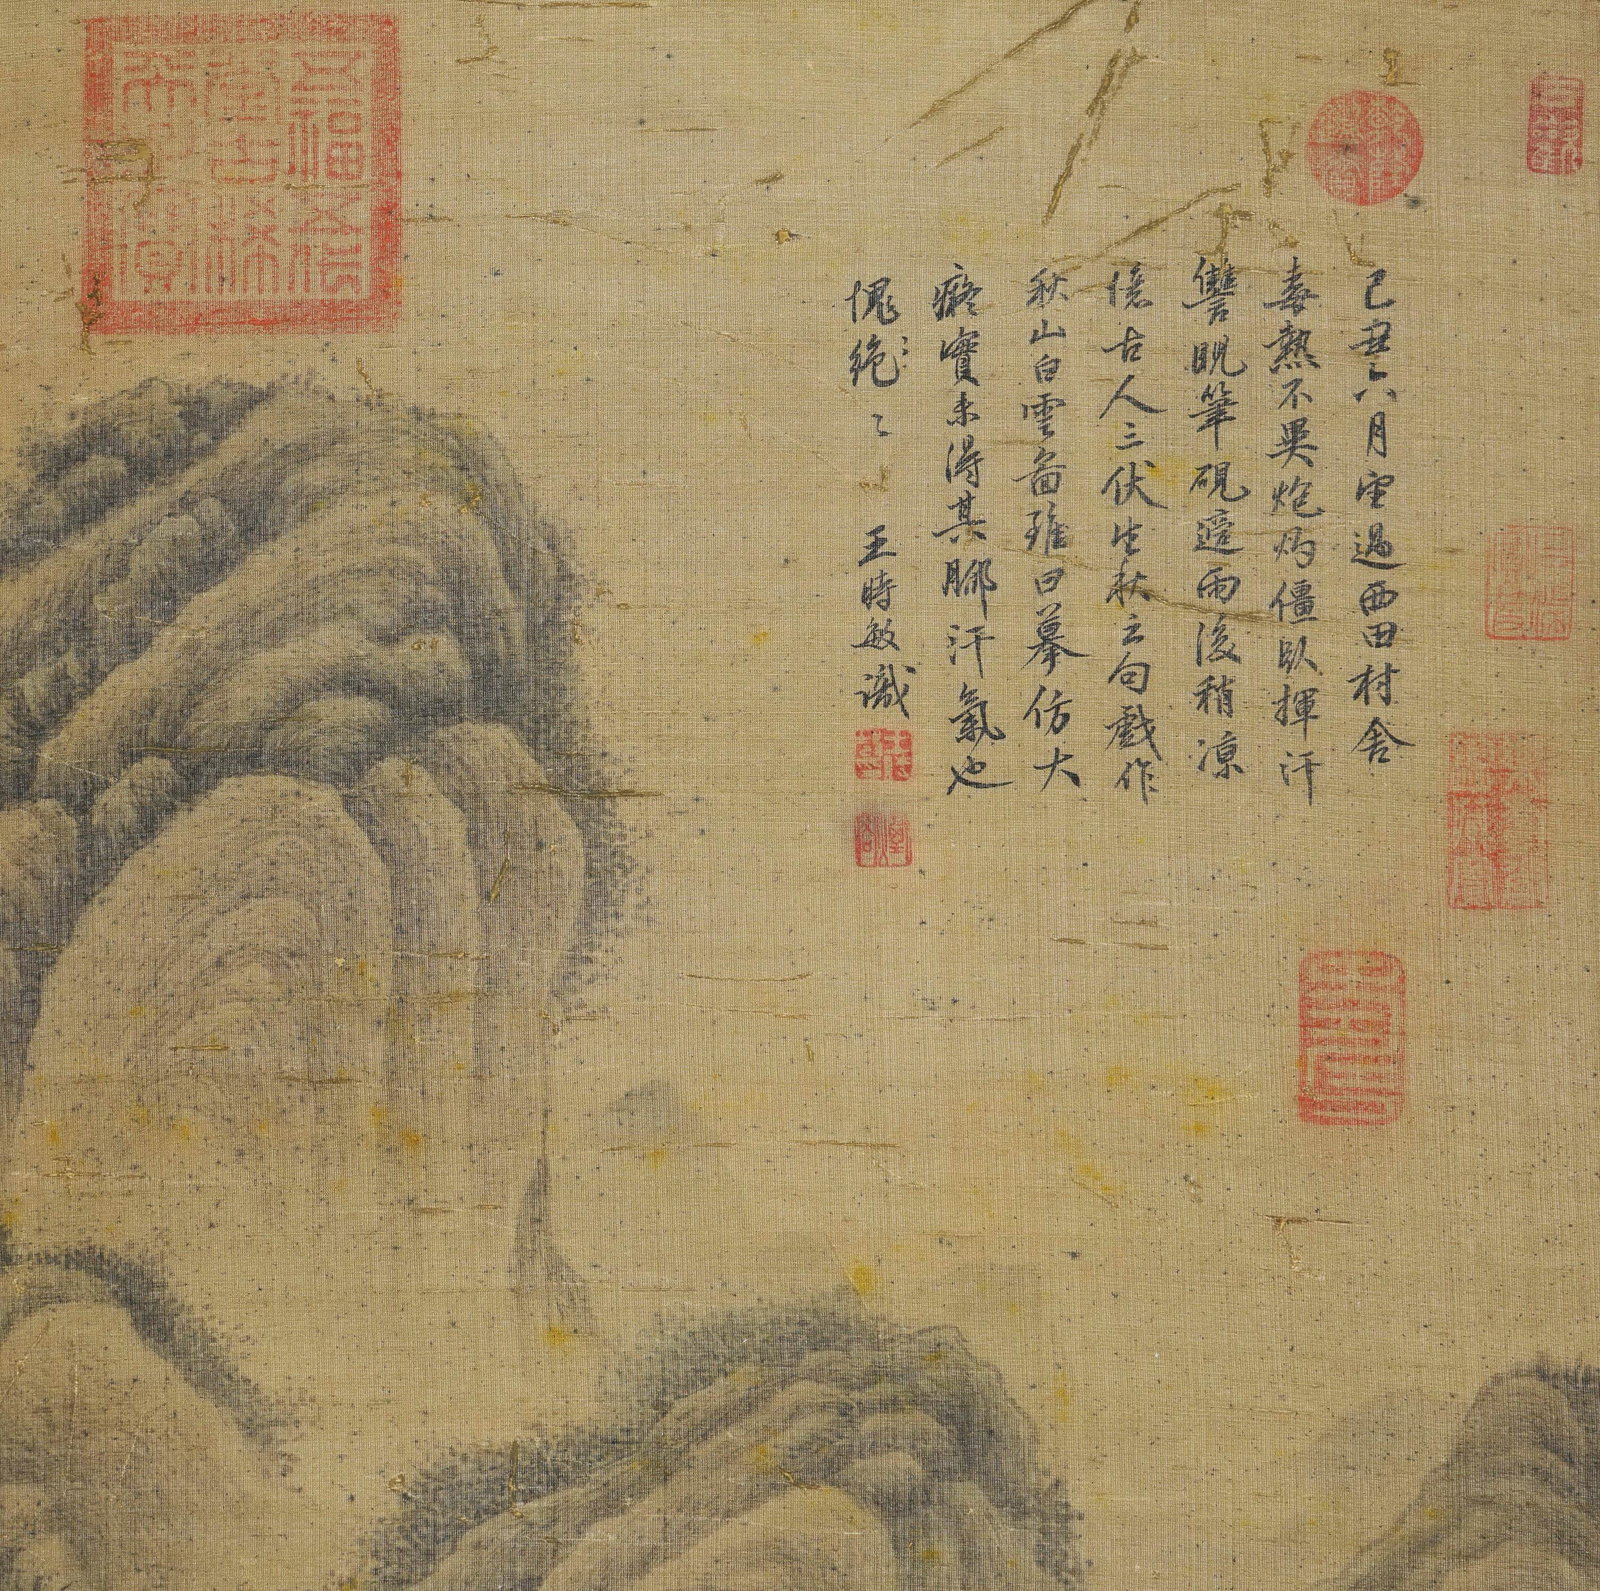 己丑六月望過西田村舍
毒熱不異炮灼僵臥揮汗
讐眎筆硯適雨後稍涼
憶古人三伏生秋之句戲作
秋山白雲圖雖曰摹仿大
癡實未得其腳汗氣也
愧絕愧絕 王時敏識
五福五代
堂古稀
天子寶